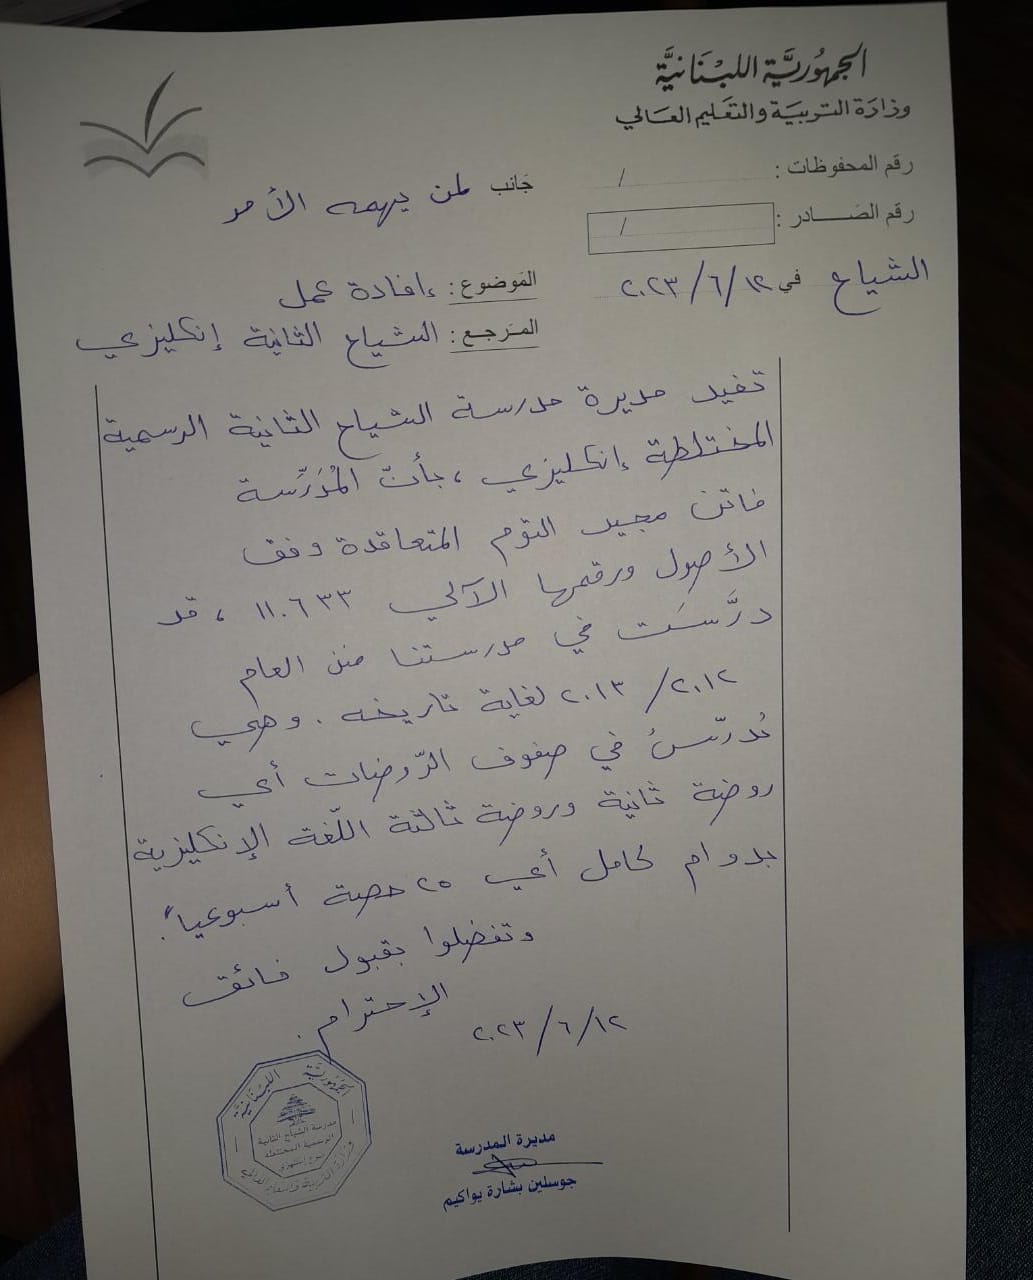 الجمهوريّة اللبنانيّة
وزارة التربية والتعليم العالي
رقم المحفوظات : /
رقم الصادر : /
الشياح في ١٢/ ٦/ ٢٠٢٣
جانب لمن يهمه الأمر
الموضوع : إفادة عمل
المرجع : الشياح الثانية إنكليزي
تفيد مديرة مدرسة الشياح الثانية الرسمية
المختلطة إنكليزي ، بأنّ المُدَرِّسة
فاتن مجيد التوم المتعاقدة وفق
الأصول ورقمها الآلي ١١٠٦٣٣ ، قد
درَّسَت في مدرستنا منذ العام
٢٠١٢/ ٢٠١٣ لغاية تاريخه . وهي
تُدرّسُ في صفوف الرّوضات أي
روضة ثانية وروضة ثالثة اللّغة الإنكليزية
بدوام كامل أي ٢٥ حصة أسبوعياً .
وتفضلوا بقبول فائق
الإحترام .
١٢/ ٦/ ٢٠٢٣
مديرة المدرسة
جوسلين بشارة يواكيم
الجمهورية اللبنانية
مدرسة الشياح الثانية
الرسمية المختلطة
وزارة التربية والتعليم العالي